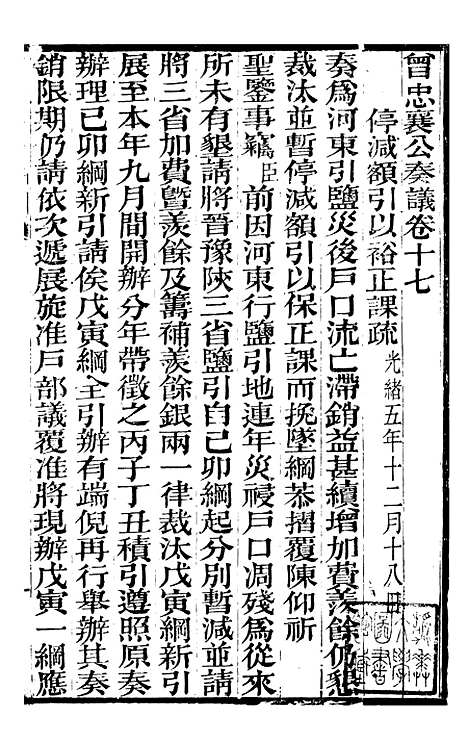 曾忠襄公奏議卷十七
停減額引以裕正課疏 光緒五年十二月十八日
奏爲河東引鹽災後戶口流亡滯銷益甚續增加費羨餘仍懇
裁汰並暫停減額引以保正課而挽墜綱恭摺覆陳仰祈
聖鑒事竊臣前因河東行鹽引地連年災祲戶口凋殘爲從來
所未有懇請將晉豫陝三省鹽引自己卯綱起分別暫減並請
將三省加費暨羨餘及籌補羨餘銀兩一律裁汰戊寅綱新引
展至本年九月間開辦分年帶徵之丙子丁丑積引遵照原奏
辦理己卯綱新引請俟戊寅綱全引辦有端倪再行舉辦其奏
銷限期仍請依次遞展旋准戶部議覆准將現辦戊寅一綱應